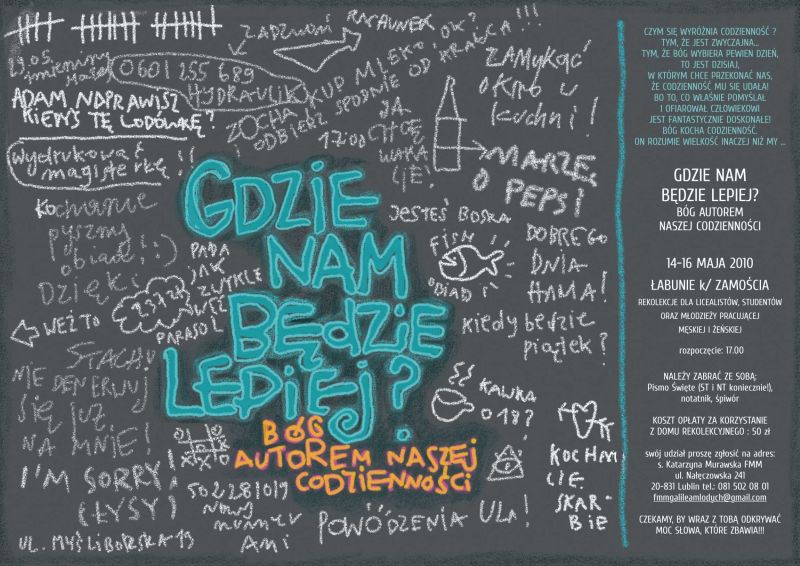 ZADZWOŃ
RACHUNEK
OK? !!!
29.05
imieniny
mamy
0601 255 689
HYDRAULIK
KUP MLEKO
ZOCHA
ODBIERZ SPODNIE OD KRAWCA!!!
ZAMYKAĆ
OKNO W
KUCHNI!
ADAM NAPRAWISZ
KIEDYŚ TĘ LODÓWKĘ?
17:00
JA
CHCĘ
WAKA
CJE!
MARZĘ
O PEPSI
Wydrukować
magisterkę!!
Kochanie
pyszny
obiad! :)
Dzięki
GDZIE
NAM
BĘDZIE
LEPIEJ?
BÓG
AUTOREM NASZEJ
CODZIENNOŚCI
JESTEŚ BOSKA
FISH
OBIAD
DOBREGO
DNIA
MAMA!
Kiedy będzie
piątek?
PADA
JAK
ZWYKLE
WEŹ
PARASOL
WEŹ TO
STACH!
NIE DENERWUJ
SIĘ JUŻ
NA MNIE!
I'M SORRY!
(ŁYSY)
UL. MYŚLIBORSKA 19
KAWKA
O 18?
502281019
NOWY
NUMER
ANI
POWODZENIA ULA!
KOCHAM
CIĘ
SKAR-
BIE
CZYM SIĘ WYRÓŻNIA CODZIENNOŚĆ ?
TYM, ŻE JEST ZWYCZAJNA...
TYM, ŻE BÓG WYBIERA PEWIEN DZIEŃ,
TO JEST DZISIAJ,
W KTÓRYM CHCE PRZEKONAĆ NAS,
ŻE CODZIENNOŚĆ MU SIĘ UDAŁA!
BO TO, CO WŁAŚNIE POMYŚLAŁ
I OFIAROWAŁ CZŁOWIEKOWI
JEST FANTASTYCZNIE DOSKONAŁE!
BÓG KOCHA CODZIENNOŚĆ.
ON ROZUMIE WIELKOŚĆ INACZEJ NIŻ MY ...
GDZIE NAM
BĘDZIE LEPIEJ?
BÓG AUTOREM
NASZEJ CODZIENNOŚCI
14-16 MAJA 2010
ŁABUNIE k/ ZAMOŚCIA
REKOLEKCJE DLA LICEALISTÓW, STUDENTÓW
ORAZ MŁODZIEŻY PRACUJĄCEJ
MĘSKIEJ I ŻEŃSKIEJ
rozpoczęcie: 17.00
NALEŻY ZABRAĆ ZE SOBĄ:
Pismo Święte (ST i NT koniecznie!),
notatnik, śpiwór
KOSZT OPŁATY ZA KORZYSTANIE
Z DOMU REKOLEKCYJNEGO : 50 zł
swój udział proszę zgłosić na adres:
s. Katarzyna Murawska FMM
ul. Nałęczowska 241
20-831 Lublin tel.: 081 502 08 01
fmmgalileamlodych@gmail.com
CZEKAMY, BY WRAZ Z TOBĄ ODKRYWAĆ
MOC SŁOWA, KTÓRE ZBAWIA!!!